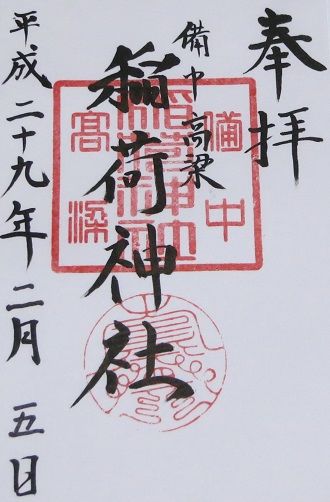 奉拝
備中高梁
稲荷神社
平成二十九年二月五日
備中
稲荷神社
高梁